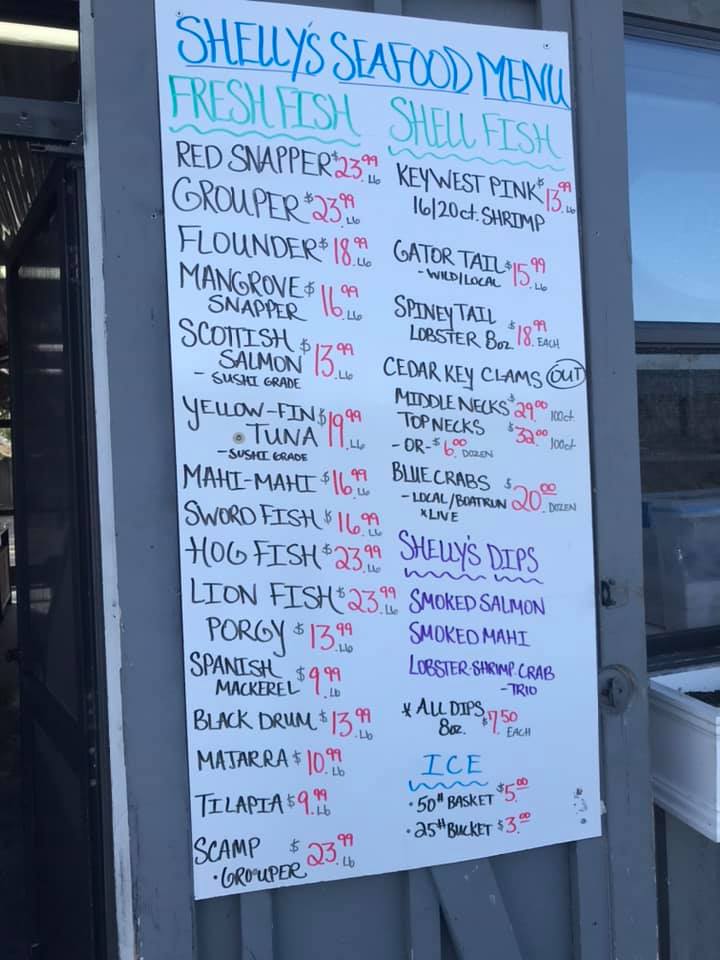 SHELLY'S SEAFOOD MENU
FRESH FISH
RED SNAPPER $23.99 Lb
GROUPER $23.99 Lb
FLOUNDER $18.99 Lb
MANGROVE $16.99 Lb
SNAPPER
SCOTTISH $13.99 Lb
SALMON
- SUSHI GRADE
YELLOW-FIN $19.99 Lb
TUNA
- SUSHI GRADE
MAHI-MAHI $16.99 Lb
SWORD FISH $16.99 Lb
HOG FISH $23.99 Lb
LION FISH $23.99 Lb
PORGY $13.99 Lb
SPANISH $9.99 Lb
MACKEREL
BLACK DRUM $13.99 Lb
MATARRA $10.99 Lb
TILAPIA $9.99 Lb
SCAMP $23.99 Lb
• GROUPER
SHELL FISH
KEY WEST PINK $13.99 Lb
16/20ct. SHRIMP
GATOR TAIL $15.99 Lb
- WILD/LOCAL
SPINEY TAIL
LOBSTER 8oz $18.99 EACH
CEDAR KEY CLAMS OUT
MIDDLE NECKS $29.00 100ct.
TOP NECKS $32.00 100ct.
- OR - $6.00 DOZEN
BLUE CRABS $20.00 DOZEN
- LOCAL/BOATRUN
x LIVE
SHELLY'S DIPS
SMOKED SALMON
SMOKED MAHI
LOBSTER-SHRIMP-CRAB
- TRIO
* ALL DIPS $7.50 EACH
8oz.
ICE
• 50# BASKET $5.00
• 25# BUCKET $3.00